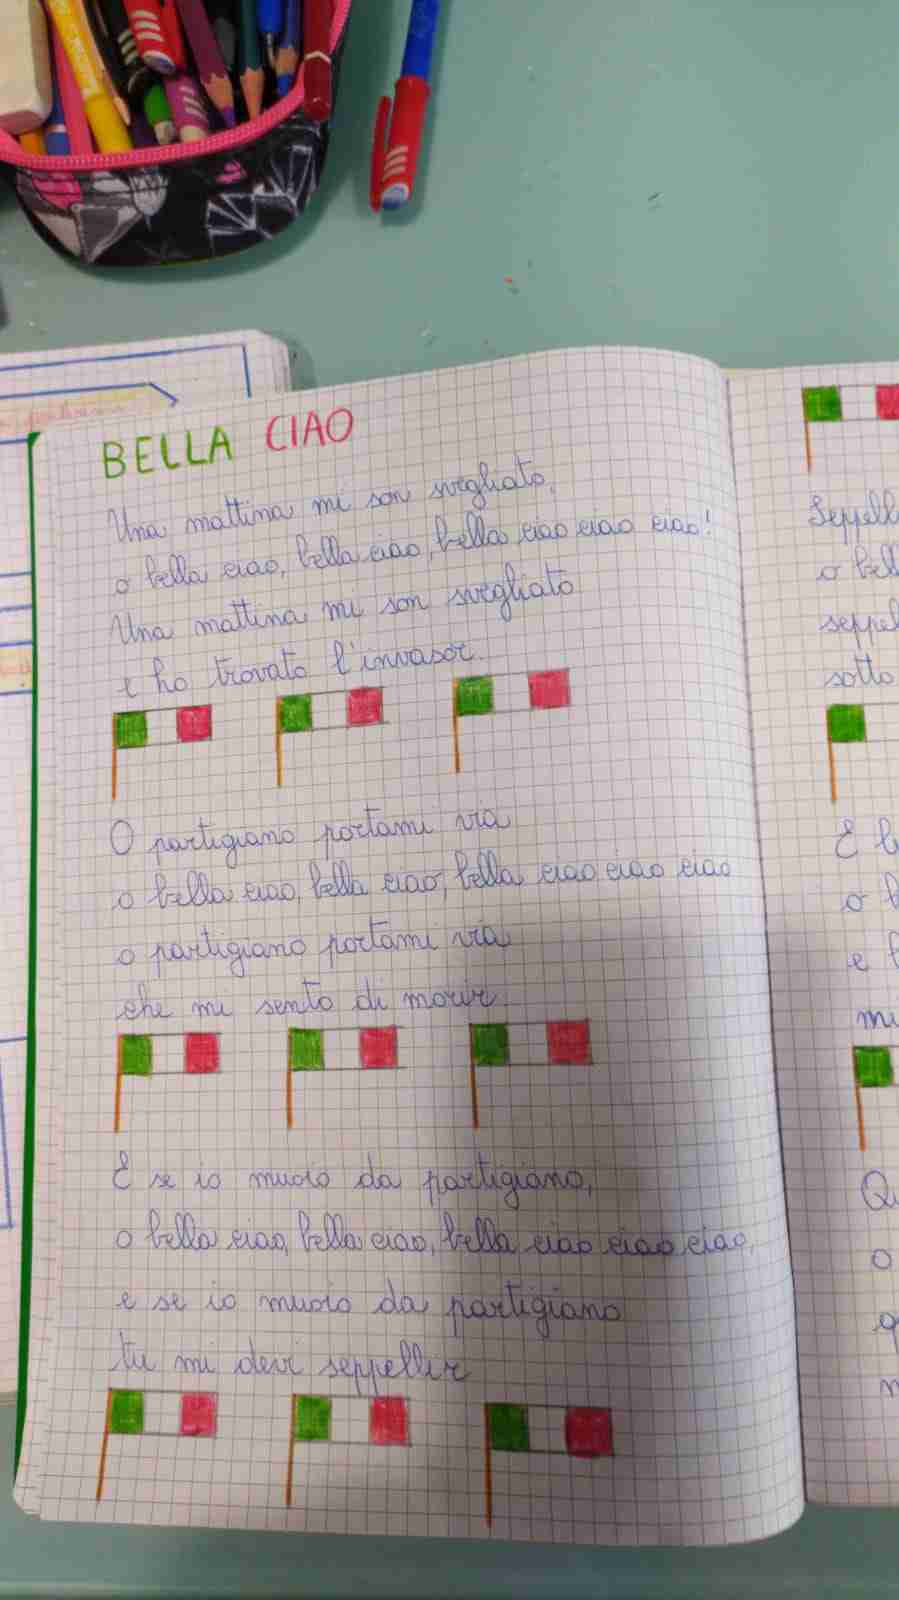 BELLA CIAO
Una mattina mi son svegliato,
o bella ciao, bella ciao, bella ciao ciao ciao!
Una mattina mi son svegliato
e ho trovato l'invasor.
O partigiano portami via
o bella ciao, bella ciao, bella ciao ciao ciao
o partigiano portami via
che mi sento di morir.
E se io muoio da partigiano,
o bella ciao, bella ciao, bella ciao ciao ciao,
e se io muoio da partigiano
tu mi devi seppellir
o
sotto
E
o
e
mi
o